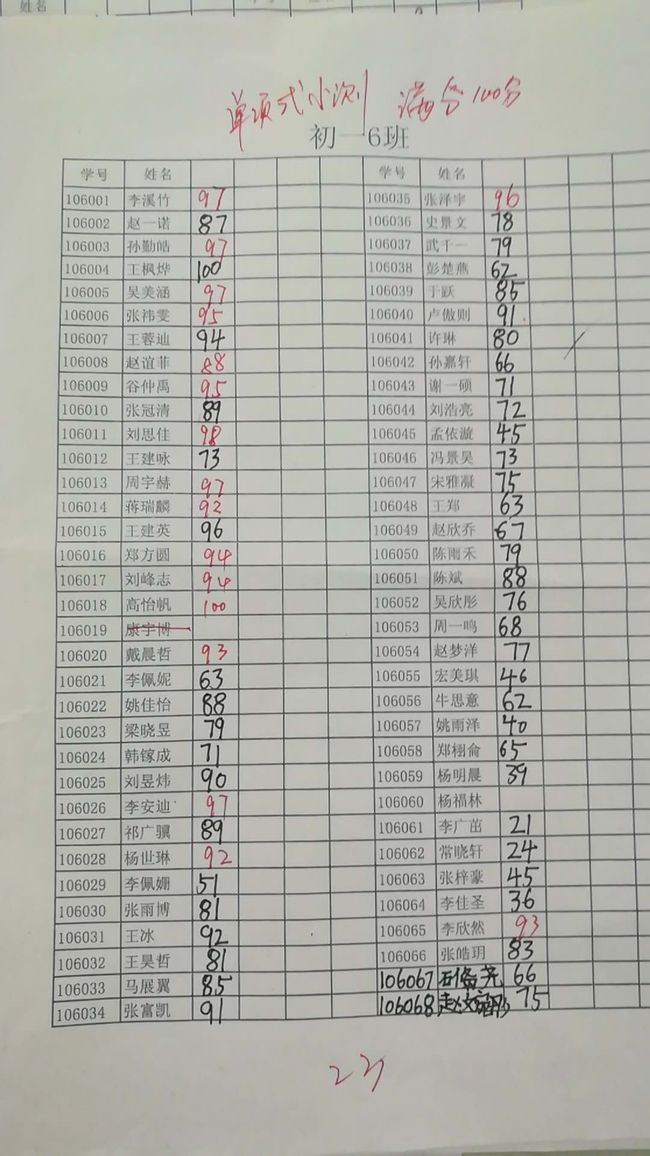 姓名
单项式小测 满分100分
初一6班
学号 姓名 学号 姓名
106001 李溪竹 97 106035 张泽宇 96
106002 赵一诺 87 106036 史景文 78
106003 孙勤皓 97 106037 武千一 79
106004 王枫烨 100 106038 彭楚燕 62
106005 吴美涵 97 106039 于跃 85
106006 张祎雯 95 106040 卢傲则 91
106007 王蓉辿 94 106041 许琳 80
106008 赵谊菲 88 106042 孙嘉轩 66
106009 谷仲禹 95 106043 谢一硕 71
106010 张冠清 89 106044 刘浩亮 72
106011 刘思佳 98 106045 孟依漩 45
106012 王建咏 73 106046 冯景昊 73
106013 周宇赫 97 106047 宋雅凝 75
106014 蒋瑞麟 92 106048 王郑 63
106015 王建英 96 106049 赵欣乔 67
106016 郑方圆 94 106050 陈雨禾 79
106017 刘峰志 94 106051 陈斌 88
106018 高怡帆 100 106052 吴欣彤 76
106019 康宇博 106053 周一鸣 68
106020 戴晨哲 93 106054 赵梦洋 77
106021 李佩妮 63 106055 宏美琪 46
106022 姚佳怡 88 106056 牛思意 62
106023 梁晓昱 79 106057 姚雨泽 40
106024 韩镓成 71 106058 郑栩侖 65
106025 刘昱炜 90 106059 杨明晨 39
106026 李安迪 97 106060 杨福林
106027 祁广骥 89 106061 李广茁 21
106028 杨世琳 92 106062 常晓轩 24
106029 李佩姗 51 106063 张梓豪 45
106030 张雨博 81 106064 李佳圣 36
106031 王冰 92 106065 李欣然 93
106032 王昊哲 81 106066 张皓玥 83
106033 马展翼 85 106067 66
106034 张富凯 91 106068 75